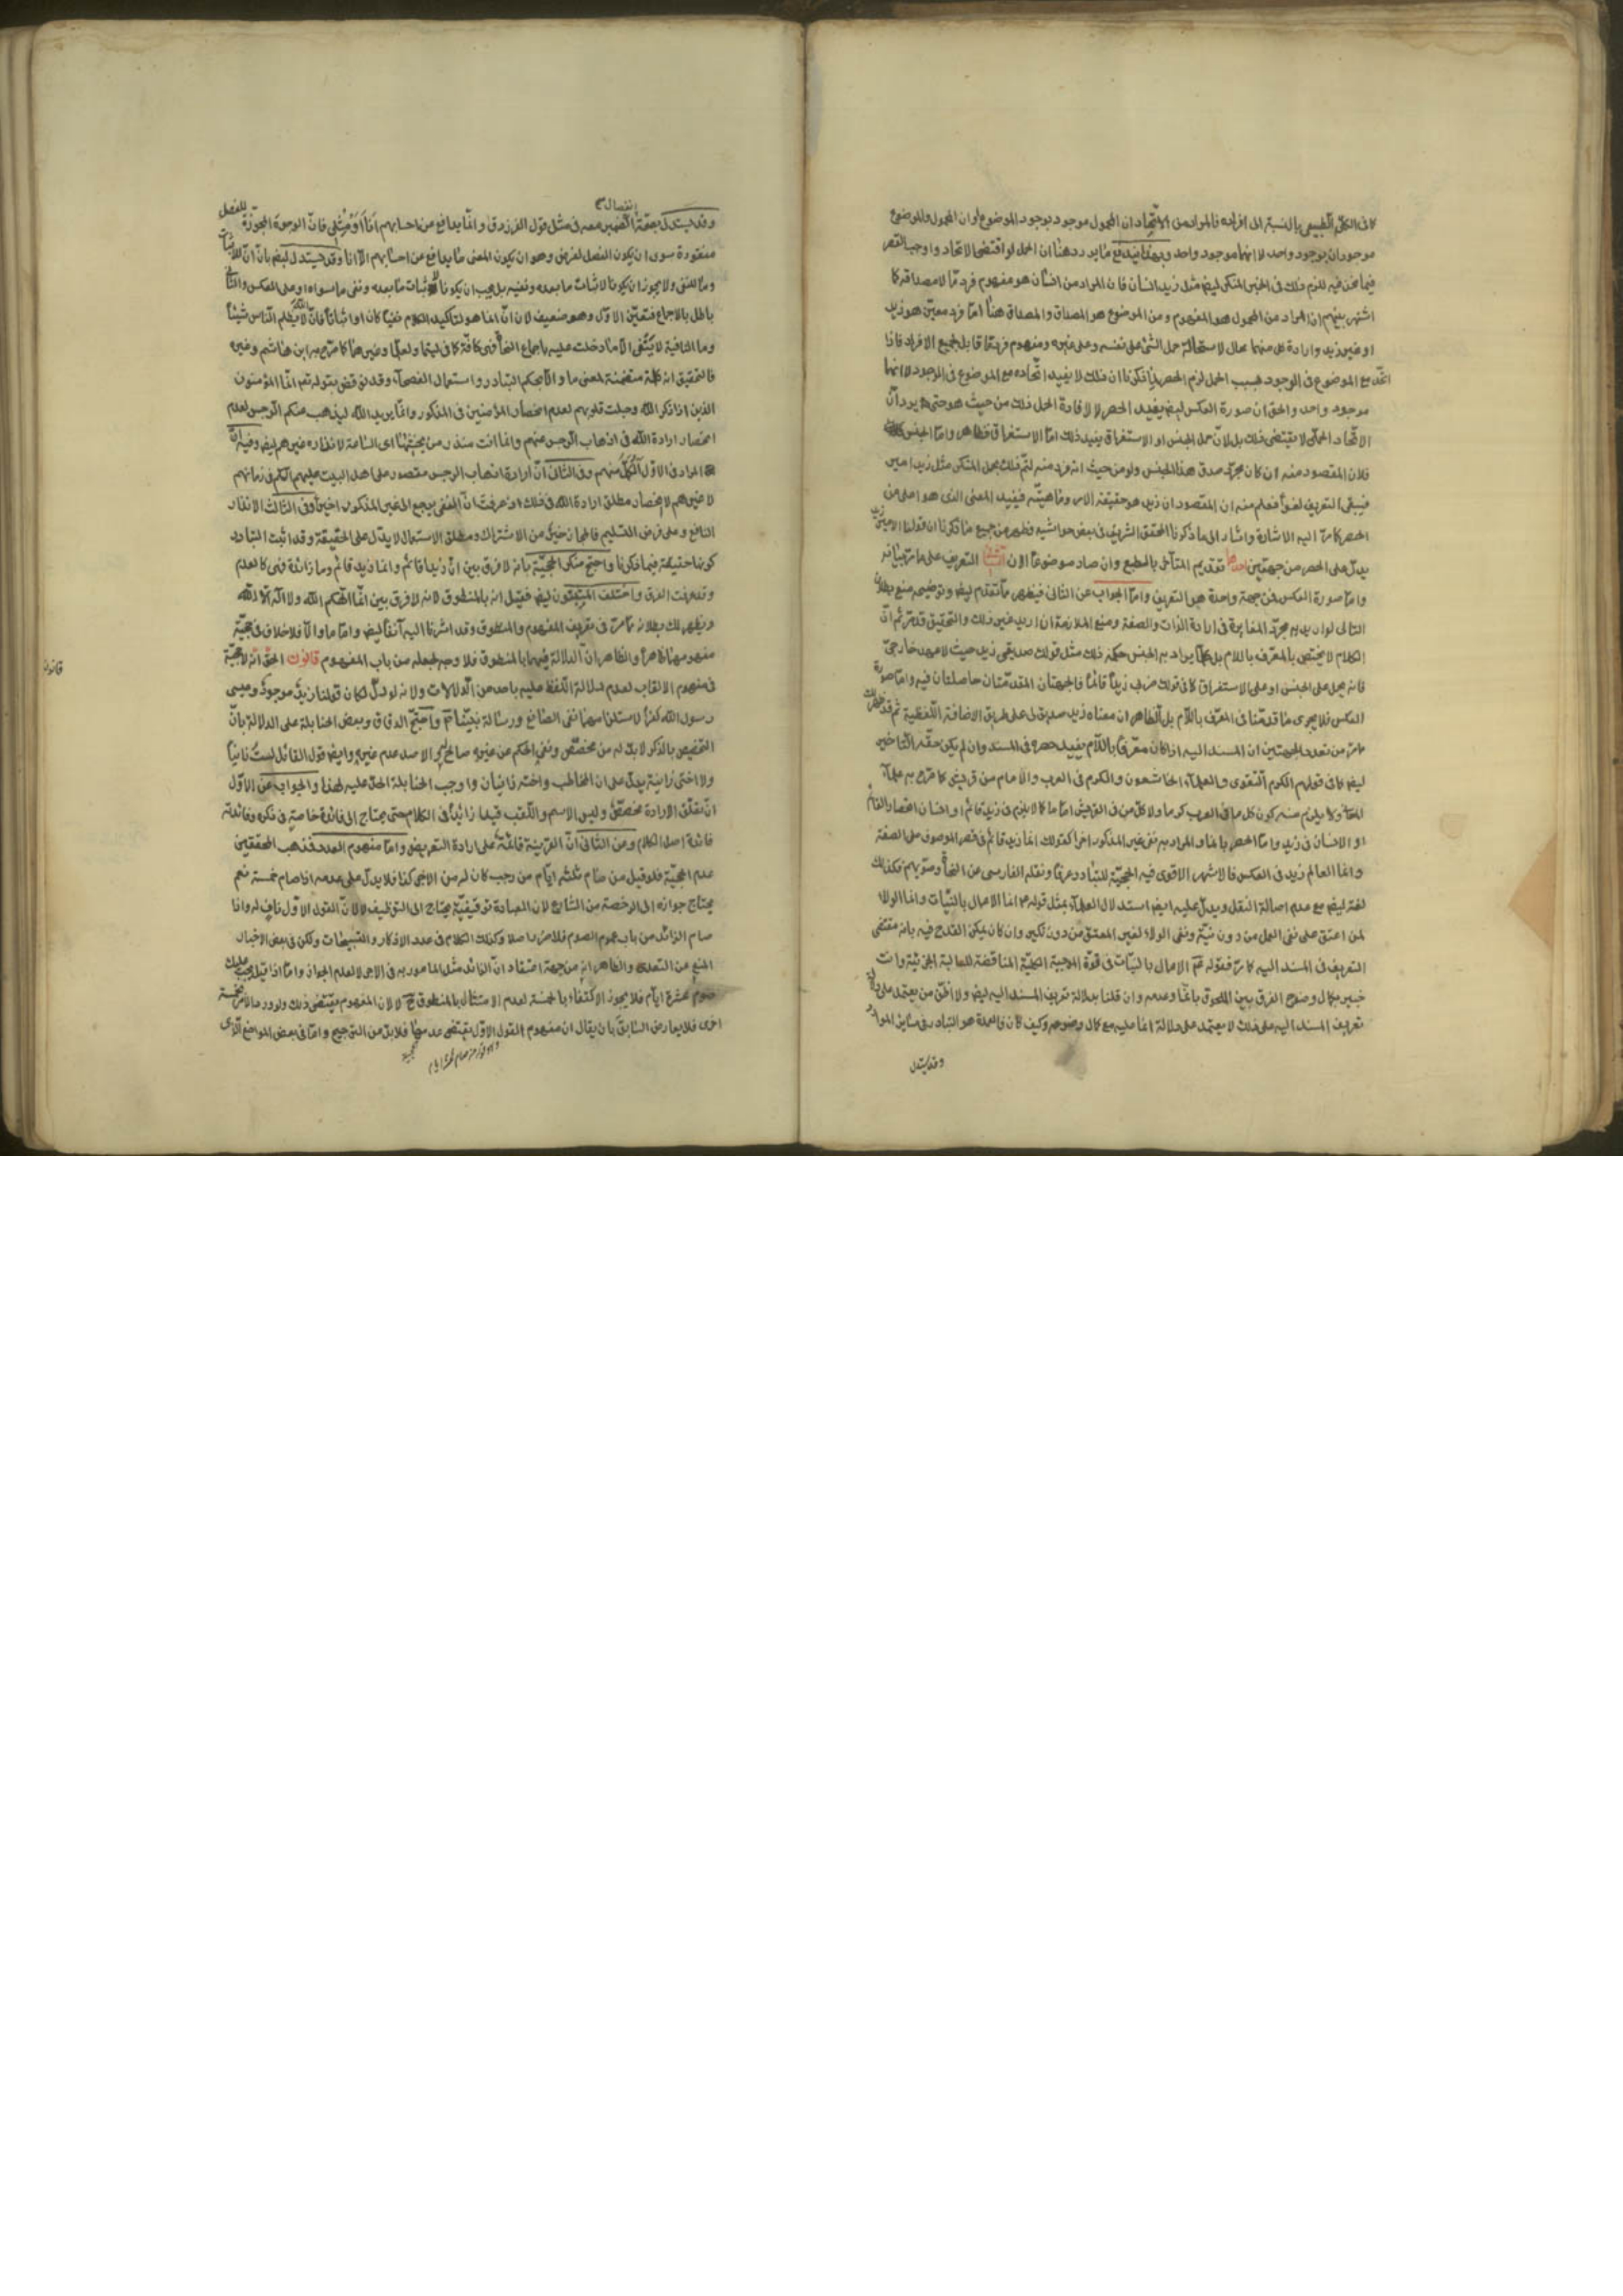 كما فى الكلّى الطبيعى بالنسبة الى افراده فالمراد من الاتّحاد ان المحمول موجود بوجود الموضوع او ان المحمول والموضوع
موجودان بوجود واحد لا انهما موجود واحد وبهذا يندفع ما يورد هنا ان الحمل لو اقتضى الاتحاد واوجب القصر
فيما نحن فيه للزم ذلك فى الخبر المنكر ايض مثل زيد انسان فان المراد من انسان هو مفهوم فرد مّا لا مصداقه كما
اشتهر بينهم ان المراد من المحمول هو المفهوم ومن الموضوع هو المصداق والمصداق هنا امّا فرد معيّن هو زيد
او غير زيد وارادة كل منهما محال لاستحالة حمل الشئ على نفسه وعلى غيره ومفهوم فرد مّا قابل لجميع الافراد فاذا
اتّحد مع الموضوع فى الوجود بسبب الحمل لزم الحصر لما ذكرنا ان ذلك لا يفيد اتّحاده مع الموضوع فى الوجود لا انهما
موجود واحد والحق ان صورة العكس ايض يفيد الحصر لا لافادة الحمل ذلك من حيث هو حتى يرد انّ
الاتّحاد الحملى لا يقتضى ذلك بل لانّ حمل الجنس او الاستغراق يفيد ذلك امّا الاستغراق فظاهر وامّا الجنس
فلان المقصود منه ان كان مجرّد صدق هذا الجنس ولو من حيث انه فرد منه لتمّ ذلك بحمل المنكر مثل زيد امير
فيبقى التعريف لغوا فعلم منه ان المقصود ان زيد هو حقيقة الامير وماهيّته فيفيد المعنى الذى هو اعلى من
الحصر كما مرّ اليه الاشارة واشار الى ما ذكرنا المحقق الشريف فى بعض حواشيه فظهر من جميع ما ذكرنا ان قولنا الامير زيد
يدلّ على الحصر من جهتين احدهما تقديم المتأخّر بالطبع وان صار موضوعا الان الثانى التعريف على ما مرّ بيانه
وامّا صورة العكس فمن جهة واحدة هو التعريف وامّا الجواب عن الثانى فيظهر ممّا تقدّم ايض وتوضيحه منع بطلان
التالى لو اريد به مجرّد المغايرة فى ارادة الذات والصفة ومنع الملازمة ان اريد غير ذلك والتحقيق قد مرّ ثم انّ
الكلام لا يختص بالمعرّف باللام بل كلّما يراد به الجنس حكمه ذلك مثل قولك صديقى زيد حيث لا عهد خارجىّ
فانه يحمل على الجنس او على الاستغراق كما فى قولك ضربى زيدا قائما فالجهتان المقدّمتان حاصلتان فيه وامّا صورة
العكس فلا يجرى ما قدّمنا فى المعرّف باللام بل الظاهر ان معناه زيد صديق لى على طريق الاضافة اللفظية ثم قد ظهر لك
ممّا مرّ من تعدد الجهتين ان المسند اليه اذا كان معرّفا باللام يفيد حصره فى المسند وان لم يكن حقّه التأخير
ايض كما فى قولهم الكرم التقوى والعلماء الخاشعون والكرم فى العرب والامام من قريش كما صرّح به علماء
المعانى ولا يلزم منه كون كل ما فى العرب كرما ولا كلّ من فى القريش اماما كما لا يلزم فى زيد قائم او انسان انحصار القائم
او الانسان فى زيد وامّا الحصر بانّما والمراد به نفى غير المذكور اخرا كقولك انما زيد قائم فى قصر الموصوف على الصفة
وانما العالم زيد فى العكس فالاشهر الاقوى فيه الحجيّة للتبادر عرفا ونقله الفارسى عن النحاة وصوّبهم فكذلك
لغة ايض مع عدم اصالة النقل ويدلّ عليه ايض استدلال العلماء بمثل قوله ع انما الاعمال بالنيّات وانما الولاء
لمن اعتق على نفى العمل من دون نيّة ونفى الولاء لغير المعتق من دون نكير وان كان يمكن القدح فيه بانه مقتضى
التعريف فى المسند اليه كما مرّ فقوله ع الاعمال بالنيّات فى قوة الموجبة الكليّة المناقضة للسالبة الجزئية وانت
خبير بكمال وضوح الفرق بين الملحوق بانّما وعدمه وان قلنا بدلالة تعريف المسند اليه ايض ولا اظن من يعتمد على دلالة
تعريف المسند اليه على ذلك لا يعتمد على دلالة انما عليه مع كمال وضوحه وكيف كان فالعمدة هو التبادر فى ساير الموارد
وقد يستدل
انفصال
وقد يستدلّ بصحّة الضمير معه فى مثل قول الفرزدق وانّما يدافع عن احسابهم انا او مثلى فانّ الوجوه المجوّزة للفصل
مفقودة سوى ان يكون الفصل لغرض وهو ان يكون المعنى ما يدافع عن احسابهم الّا انا وقد يستدل ايض بانّ انّ للاثبات
وما للنفى ولا يجوز ان يكونا لاثبات ما بعده ونفيه بل يجب ان يكونا لاثبات ما بعده ونفى ما سواه او على العكس والثانى
باطل بالاجماع فتعيّن الاوّل وهو ضعيف لان انّ انما هو لتأكيد الكلام نفيا كان او اثباتا فانّ الله لا يظلم الناس شيئا
وما النافية لا ينفى الّا ما دخلت عليه باجماع النحاة فهى كافّة كما فى ليتما ولعلّما وغيرهما كما صرّح به ابن هشام وغيره
فالتحقيق انه كلمة متضمّنة لمعنى ما والّا بحكم التبادر واستعمال الفصحاء وقد نوقض بقوله تعم انّما المؤمنون
الذين اذا ذكر الله وجلت قلوبهم لعدم انحصار المؤمنين فى المذكور وانّما يريد الله ليذهب عنكم الرجس لعدم
انحصار ارادة الله فى اذهاب الرجس عنهم وانما انت منذر من يخشيها اى الساعة لانذاره غيرهم ايض وفيه انّ
المراد فى الاوّل الكمّل منهم وفى الثانى انّ ارادة اذهاب الرجس مقصور على اهل البيت عليهم السلام فى زمانهم
لا غيرهم لا انحصار مطلق ارادة الله فى ذلك اذ عرفت انّ النفى يرجع الى غير المذكور اخيرا وفى الثالث الانذار
النافع وعلى فرض التسليم فالمجاز خير من الاشتراك ومطلق الاستعمال لا يدلّ على الحقيقة وقد اثبت التبادر
كونها حقيقة فيما ذكرنا واحتج منكر الحجيّة بانه لا فرق بين انّ زيدا قائم وانما زيد قائم وما زائدة فهى كالعدم
وقد عرفت الفرق واختلف المثبتون ايض فقيل انه بالمنطوق لانه لا فرق بين انّما الهكم الله ولا اله الّا الله
ويظهر لك بطلانه ممّا مرّ فى تعريف المفهوم والمنطوق وقد اشرنا اليه آنفا ايض وامّا ما والّا فلا خلاف فى حجيّة
مفهومهما ظاهرا والظاهر انّ الدلالة فيهما بالمنطوق فلا وجه لجعله من باب المفهوم قانون الحقّ انّه لا حجيّة
قانون
فى مفهوم الالقاب لعدم دلالة اللفظ عليه باحد من الدلالات ولانه لو دلّ لكان قولنا زيد موجود وعيسى
رسول الله كفرا لاستلزامهما نفى الصانع ورسالة نبيّنا ص واحتجّ الدقاق وبعض الحنابلة على الدلالة بانّ
التخصيص بالذكر لا بد له من مخصّص ونفى الحكم عن غيره صالح له والاصل عدم غيره وايض قول القائل لست زانيا
ولا اختى زانية يدلّ على ان المخاطب واخته زانيان واوجب الحنابلة الحدّ عليه لهذا والجواب عن الاوّل
انّ تعلّق الارادة مخصّص وليس الاسم واللقب قيدا زائدا فى الكلام حتى يحتاج الى فائدة خاصة فى ذكره وفائدته
فائدة اصل الكلام وعن الثانى انّ القرينة قائمة على ارادة التعريض وامّا مفهوم العدد فمذهب المحققين
عدم الحجيّة فلو قيل من صام ثلثة ايّام من رجب كان له من الاجر كذا فلا يدلّ على عدمه اذا صام خمسة نعم
يحتاج جوازه الى الرخصة من الشارع لان العبادة توقيفيّة يحتاج الى التوظيف لا لانّ القول الاوّل نافٍ له واذا
صام الزائد من باب عموم الصوم فلا ضير اصلا وكذلك الكلام فى عدد الاذكار والتسبيحات ولكن فى بعض الاخبار
المنع عن التعدى والظاهر انه من جهة اعتقاد انّ الزائد مثل المامور به فى الاجر لا لعدم الجواز وامّا اذا قيل يجب عليك
صوم عشرة ايّام فلا يجوز الاكتفاء بالخمسة لعدم الامتثال بالمنطوق ح لا لان المفهوم يقتضى ذلك ولو ورد ما لا
اخرى فلا يعارض السابق بان يقال ان مفهوم القول الاوّل يقتضى عدمها فلا بدّ من الترجيح وامّا فى بعض المواضع الّذى